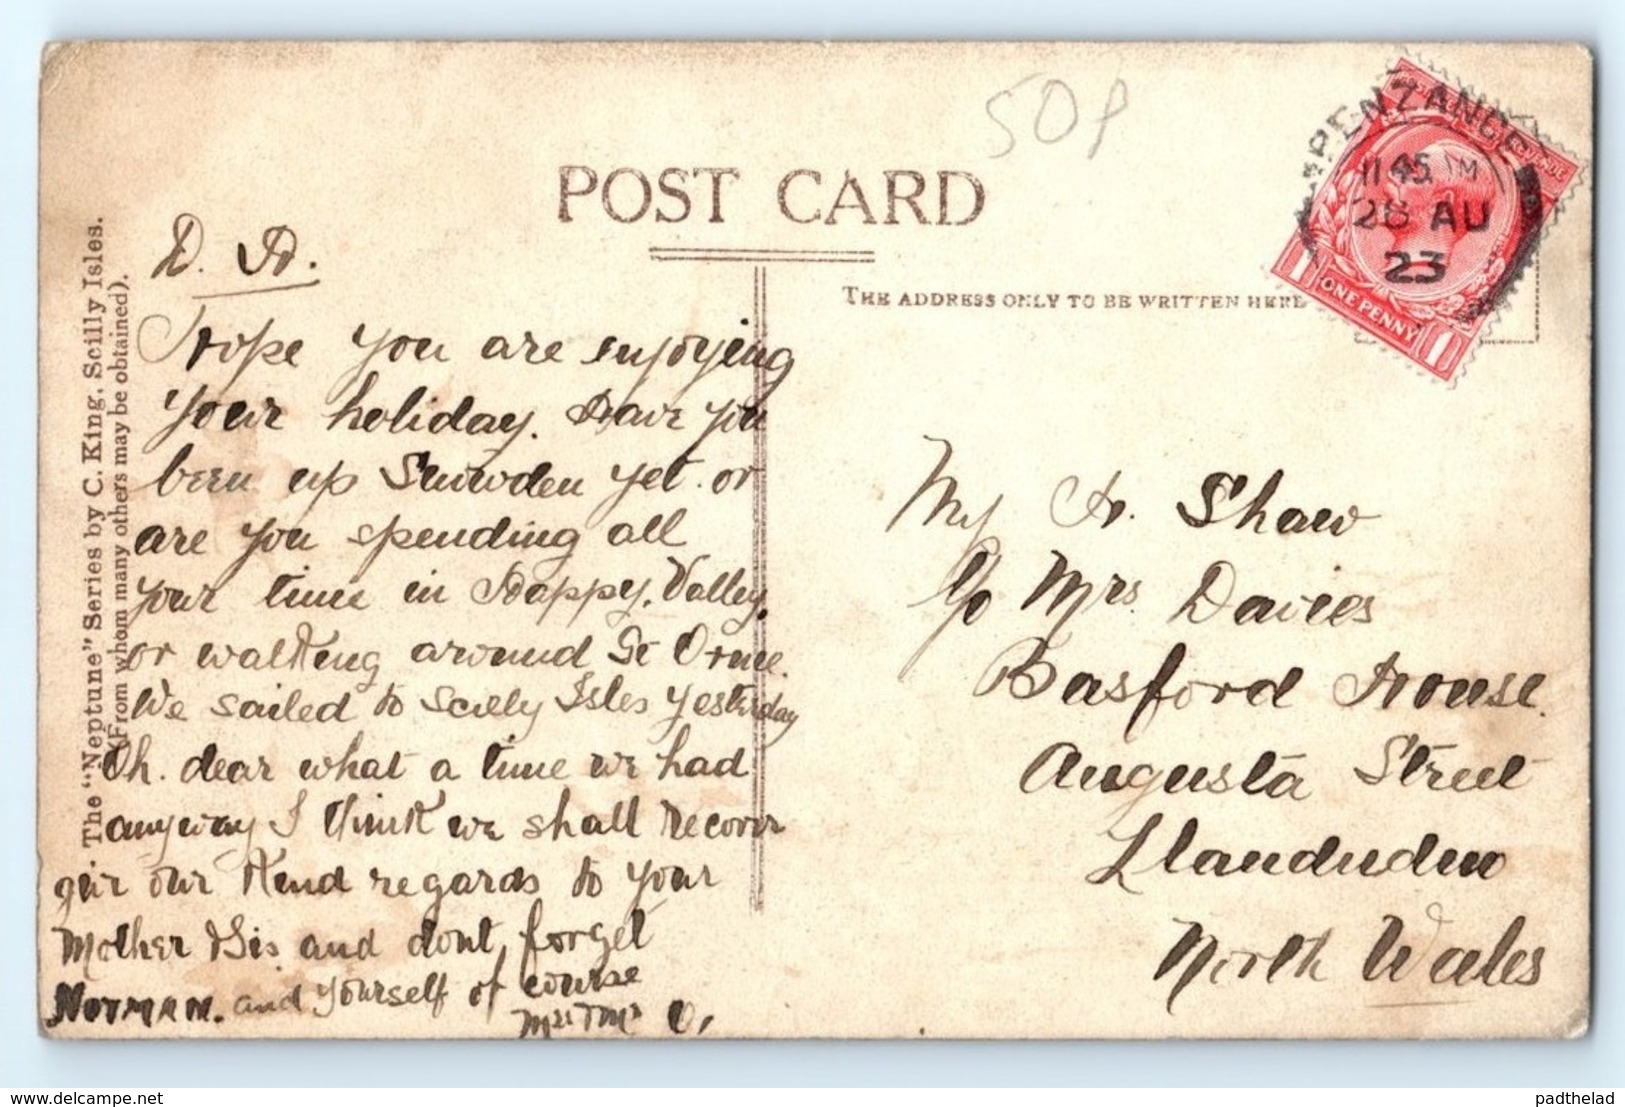 50p
POST CARD
THE ADDRESS ONLY TO BE WRITTEN HERE
PENZANCE
11 45 AM
28 AU
23
1 ONE PENNY 1
The "Neptune" Series by C. King, Scilly Isles.
(From whom many others may be obtained).
D. H.
Hope you are enjoying
your holiday. Have you
been up Snowden yet. or
are you spending all
your time in Happy. Valley.
or walking around Gt Orme.
We sailed to Scilly Isles yesterday
Oh. dear what a time we had
anyway I think we shall recover
give our kind regards to your
Mother & Sis and dont forget
NORMAN. and yourself of course
Mr & Mrs O.
H. Shaw
c/o Mrs. Davies
Basford House.
Augusta Street
Llandudno
North Wales
www.delcampe.net
padthelad